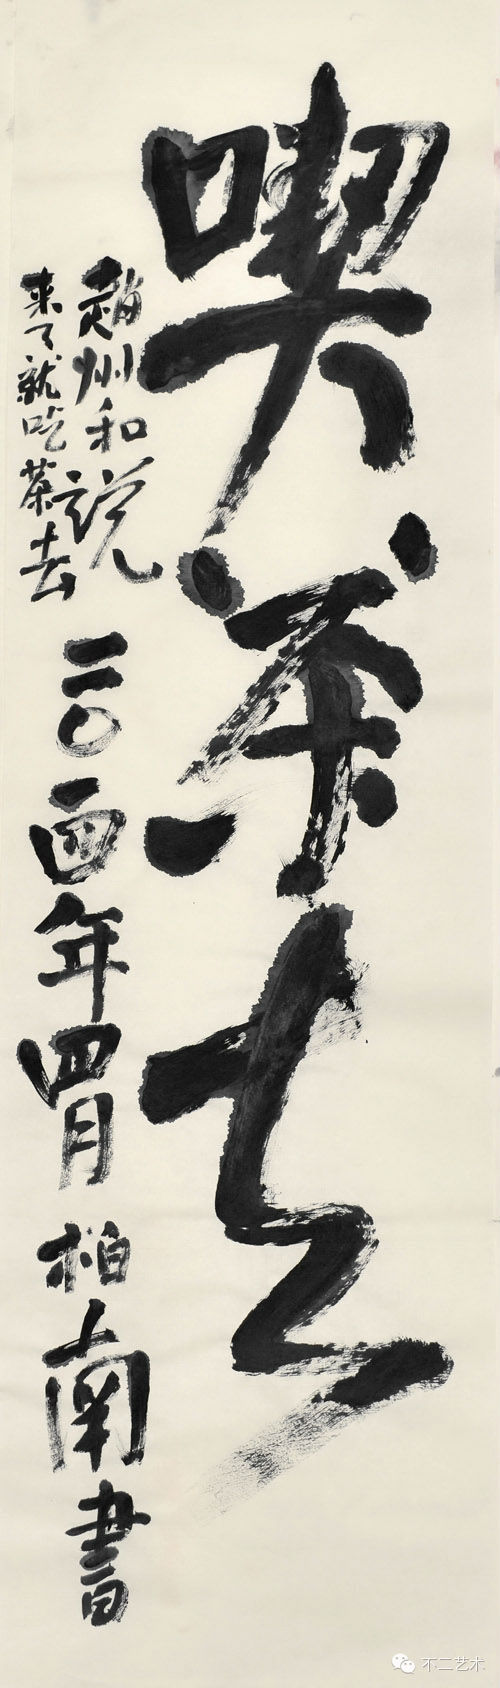 喫茶去
趙州和说
来了就吃茶去
二〇一四年四月柏南書
不二艺术